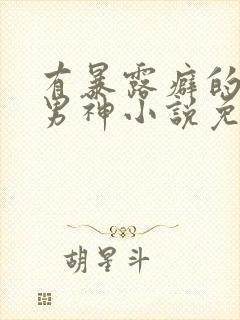 有暴露癖的
男神小説免
胡星斗